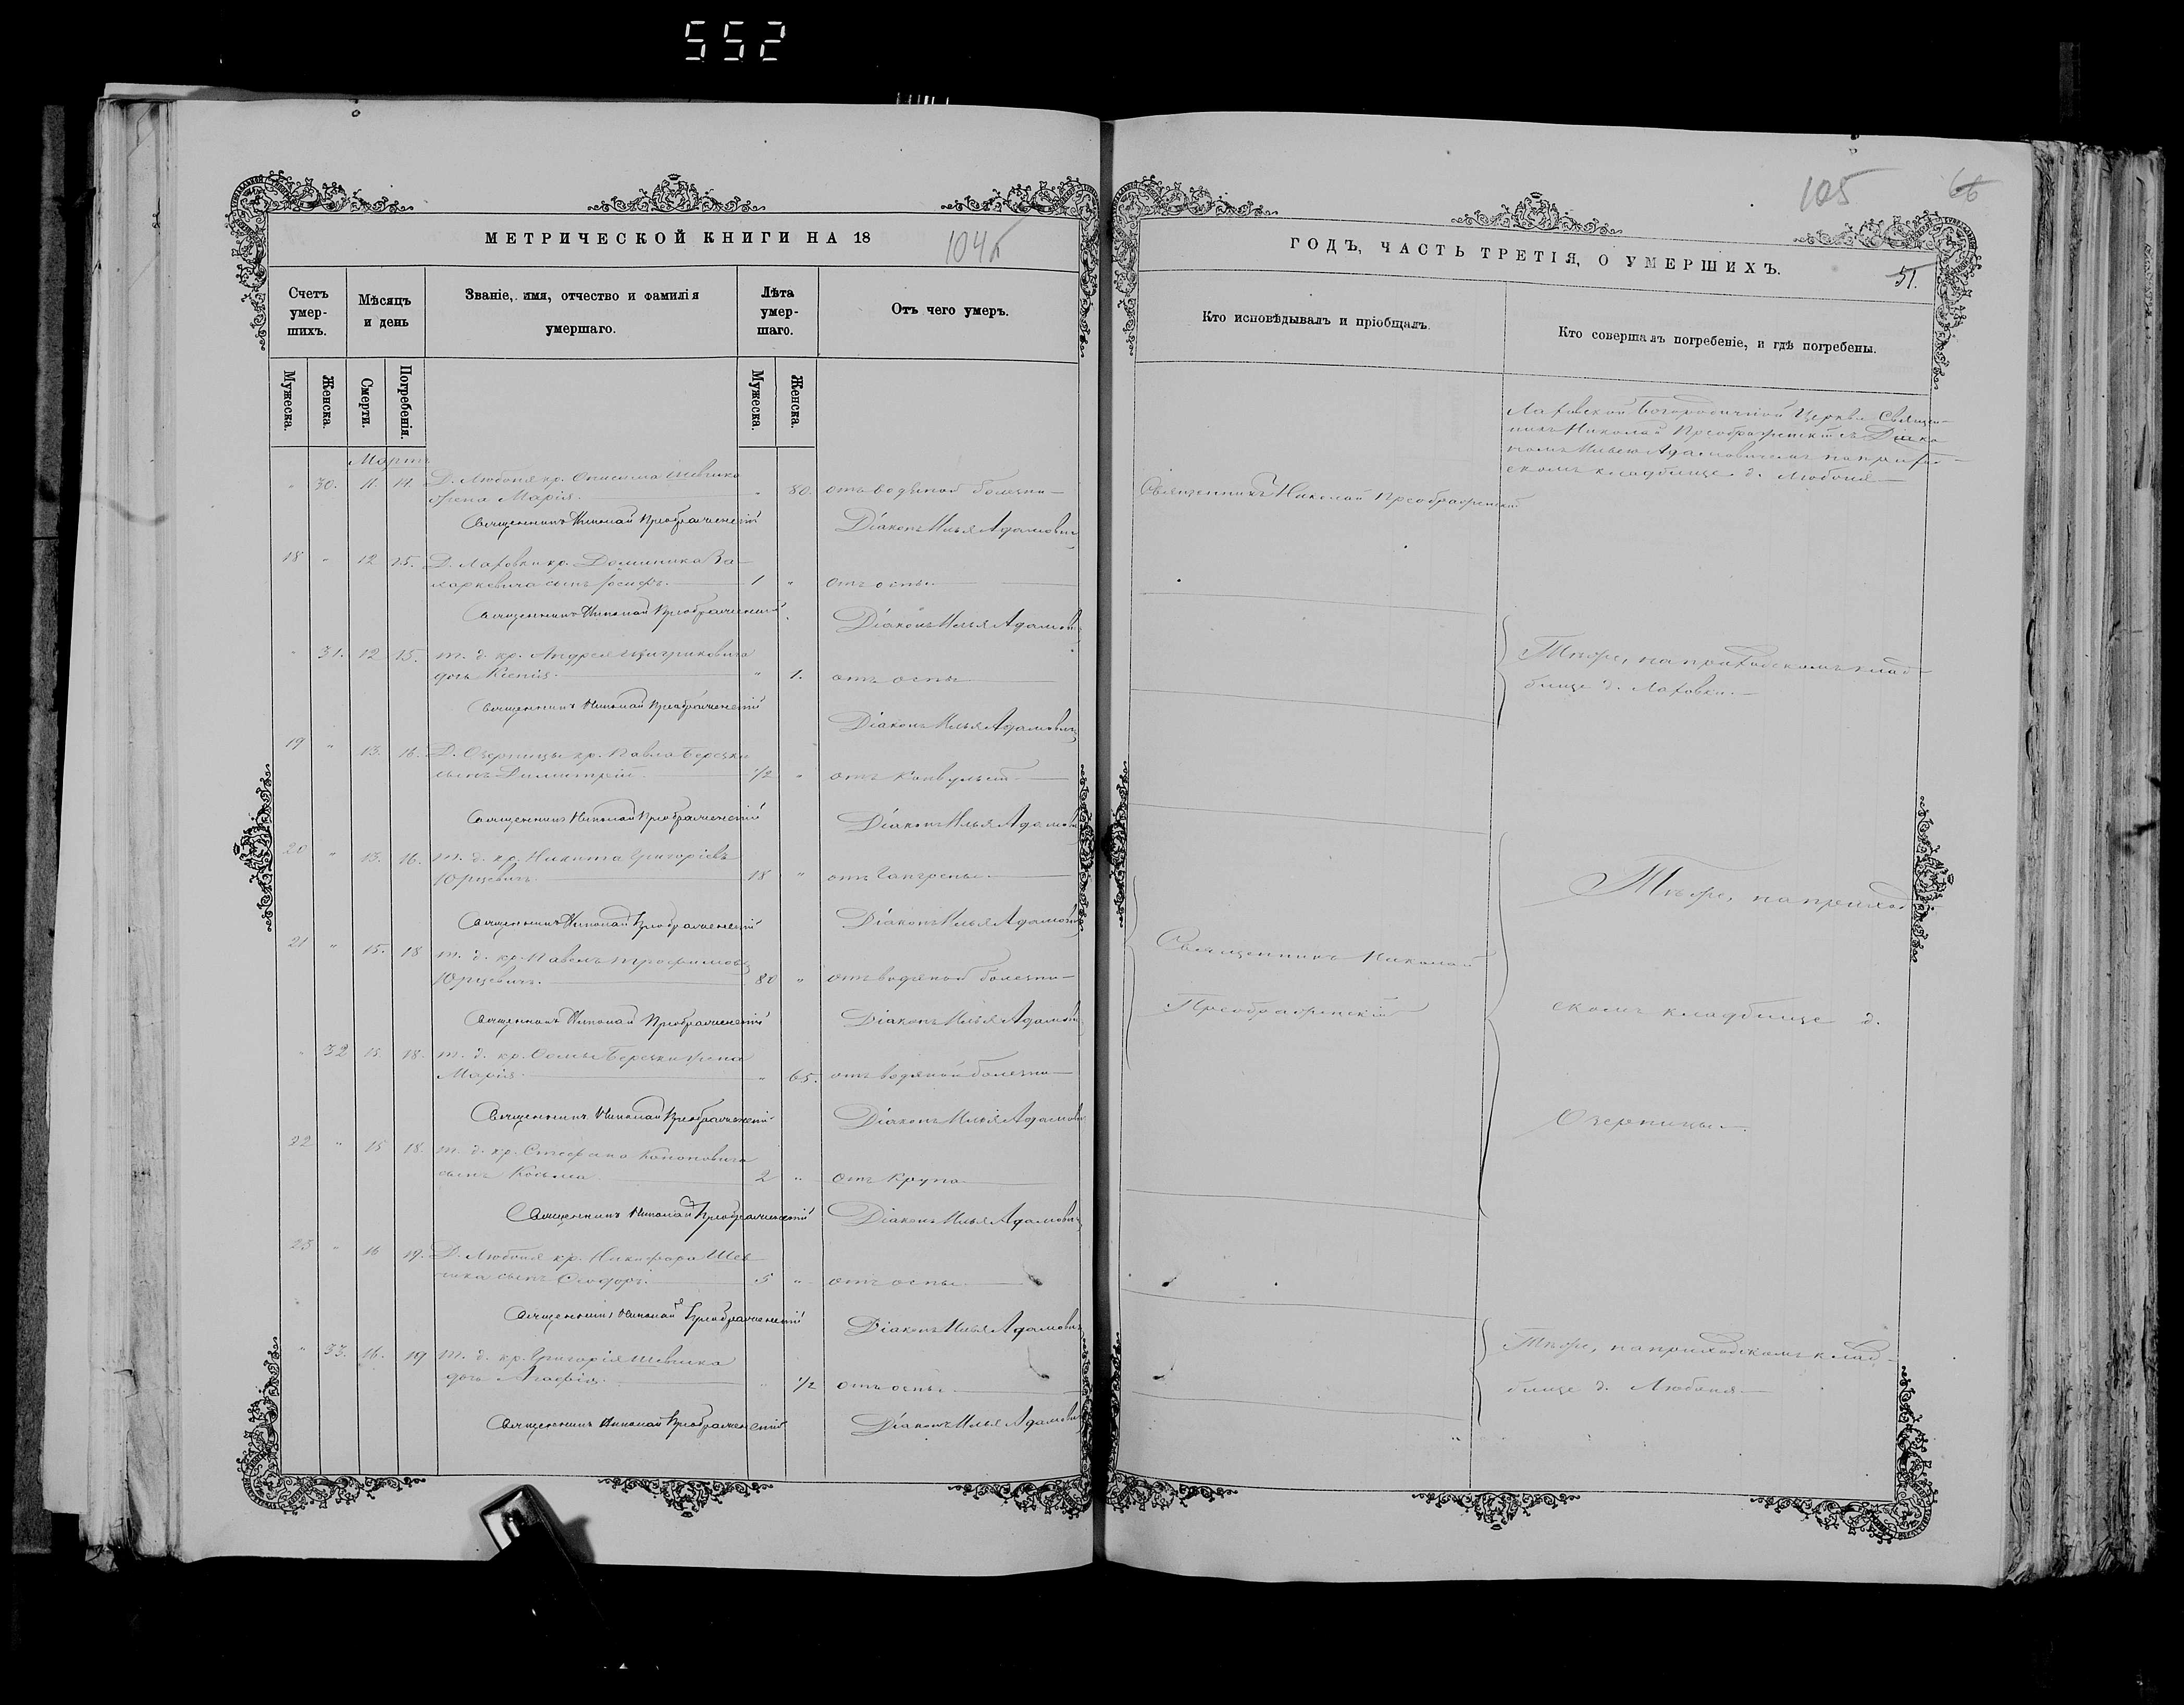 552
МЕТРИЧЕСКОЙ КНИГИ НА 18
104
Счетъ умер-шихъ.
Мѣсяцъ и день
Званіе, имя, отчество и фамилія умершаго.
Лѣта умер-шаго.
Отъ чего умеръ.
Мужеска.
Женска.
Смерти.
Погребенія.
Мужеска.
Женска.
Мартъ
" 30. 11. 14. Д. Любоня кр. Онисима Шевчика
жена Марія. " 80. отъ водяной болезни
Священникъ Николай Преображенскій Діаконъ Илья Адамович
18 " 12 15. Д. Лаховки кр. Доминика
сынъ Іосифъ. 1 " отъ оспы
Священникъ Николай Преображенскій Діаконъ Илья Адамов
" 31. 12 15. т. д. кр. Андрея
дочь Ксенія. " 1. отъ оспы
Священникъ Николай Преображенскій Діаконъ Илья Адамович
19 " 13. 16. Д. Озерницы кр. Павла Березки
сынъ Димитрій. 1/2 " отъ конвульсій
Священникъ Николай Преображенскій Діаконъ Илья Адамов
20 " 13. 16. т. д. кр. Никита Григоріевъ
Юрцевичъ. 18 " отъ гангрены
Священникъ Николай Преображенскій Діаконъ Илья Адамов
21 " 15. 18 т. д. кр. Павелъ Трофимовъ
Юрцевичъ. 80 " отъ водяной болезни
Священникъ Николай Преображенскій Діаконъ Илья Адамов
" 32 15. 18. т. д. кр. Фомы Березки жена
Марія. " 65. отъ водяной болезни
Священникъ Николай Преображенскій Діаконъ Илья Адамов
22 " 15 18. т. д. кр. Стефана Кононовича
сынъ Косьма 2 " отъ крупа
Священникъ Николай Преображенскій Діаконъ Илья Адамович
23 " 16 19. Д. Любоня кр. Никифора Шев-
чика сынъ Ѳеодоръ. 5 " отъ оспы
Священникъ Николай Преображенскій Діаконъ Илья Адамович
" 33. 16. 19 т. д. кр. Григорія Шевчика
дочь Агафія. " 1/2 отъ оспы
Священникъ Николай Преображенскій Діаконъ Илья Адамов
105
66
ГОДЪ, ЧАСТЬ ТРЕТІЯ, О УМЕРШИХЪ.
51.
Кто исповѣдывалъ и пріобщалъ.
Кто совершалъ погребеніе, и гдѣ погребены.
Лаховской Богородичной Церкви Священ-
никъ Николай Преображенскій съ Діако
номъ Ильею Адамовичемъ на приход-
скомъ кладбище д. Любоня
Священникъ Николай Преображенскій
Тѣже, на приходскомъ клад-
бище д. Лаховки.
Тѣже, на приход
Священникъ Николай
Преображенскій
скомъ кладбище д.
Озерницы.
Тѣже, на приходскомъ клад-
бище д. Любоня